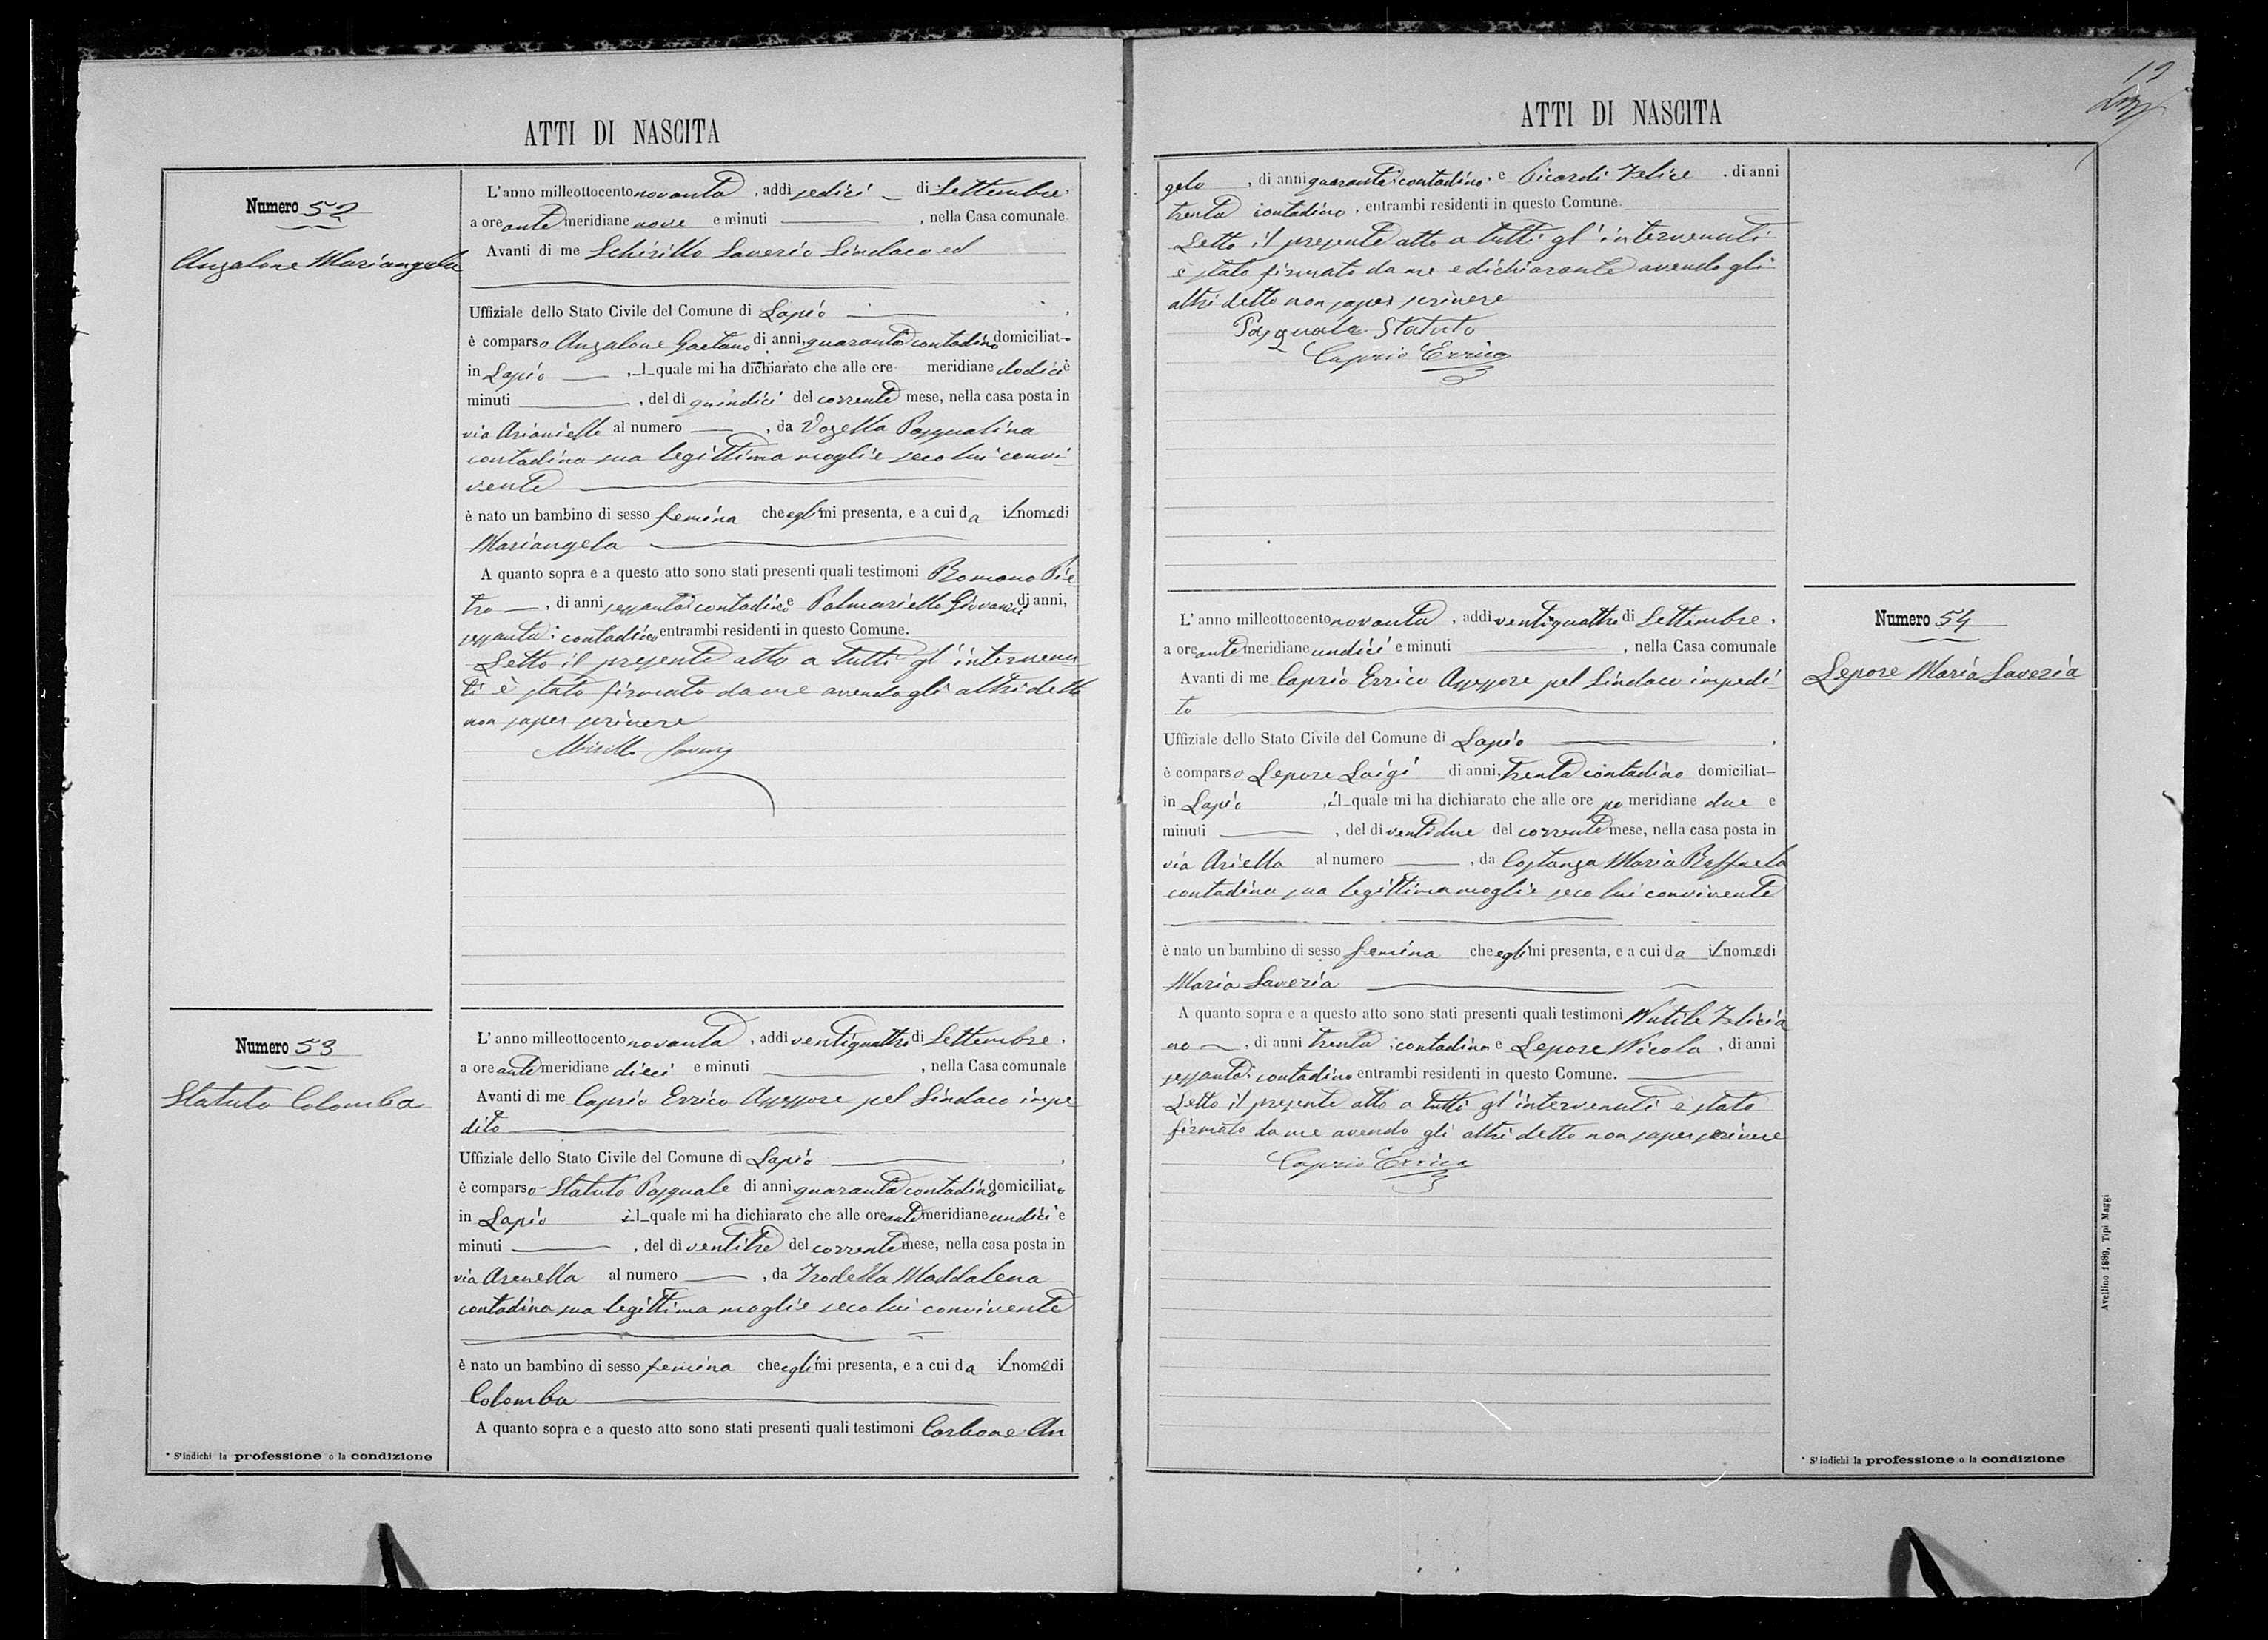 ATTI DI NASCITA
Numero 52
Anzalone Mariangela
L'anno milleottocento novanta, addì sedici di Settembre
a ore ante meridiane nove e minuti, nella Casa comunale
Avanti di me Schirillo Saverio Sindaco ed
Uffiziale dello Stato Civile del Comune di Lapio
è comparso Anzalone Gaetano di anni, quaranta contadino domiciliato
in Lapio, l quale mi ha dichiarato che alle ore meridiane dodici e
minuti, del dì quindici del corrente mese, nella casa posta in
via Arianiello al numero, da Vozella Pasqualina
contadina sua legittima moglie seco lui convi
vente
è nato un bambino di sesso femina che egli mi presenta, e a cui da il nome di
Mariangela
A quanto sopra e a questo atto sono stati presenti quali testimoni Romano Pie
tro, di anni sessanta contadino e Palmariello Giovanni di anni,
sessanta contadino entrambi residenti in questo Comune.
Letto il presente atto a tutti gl'intervenu
ti è stato firmato da me avendo gli altri detto
non saper scrivere
Numero 53
Statuto Colomba
L'anno milleottocento novanta, addì ventiquattro di Settembre,
a ore ante meridiane dieci e minuti, nella Casa comunale
Avanti di me Caprio Errico Assessore pel Sindaco impe
dito
Uffiziale dello Stato Civile del Comune di Lapio,
è comparso Statuto Pasquale di anni quaranta contadino domiciliato
in Lapio il quale mi ha dichiarato che alle ore ante meridiane undici e
minuti, del dì ventitre del corrente mese, nella casa posta in
via Arenella al numero, da Trodella Maddalena
contadina sua legittima moglie seco lui convivente
è nato un bambino di sesso femina che egli mi presenta, e a cui da il nome di
Colomba
A quanto sopra e a questo atto sono stati presenti quali testimoni Carbone An
* S'indichi la professione o la condizione
ATTI DI NASCITA
gelo, di anni quaranta contadino, e Picardi Felice, di anni
trenta contadino, entrambi residenti in questo Comune.
Letto il presente atto a tutti gl'intervenuti
è stato firmato da me e dichiarante avendo gli
altri detto non saper scrivere
Pasquale Statuto
Caprio Errico
Numero 54
Lepore Maria Saveria
L'anno milleottocento novanta, addì ventiquattro di Settembre,
a ore ante meridiane undici e minuti, nella Casa comunale
Avanti di me Caprio Errico Assessore pel Sindaco impedi
to
Uffiziale dello Stato Civile del Comune di Lapio,
è comparso Lepore Luigi di anni, trenta contadino domiciliat
in Lapio, il quale mi ha dichiarato che alle ore po meridiane due e
minuti, del dì ventidue del corrente mese, nella casa posta in
via Ariella al numero, da Costanza Maria Raffaela
contadina sua legittima moglie seco lui convivente
è nato un bambino di sesso femina che egli mi presenta, e a cui da il nome di
Maria Saveria
A quanto sopra e a questo atto sono stati presenti quali testimoni Nutile Felicia
no, di anni trenta contadino e Lepore Nicola, di anni
sessanta contadino entrambi residenti in questo Comune.
Letto il presente atto a tutti gl'intervenuti è stato
firmato da me avendo gli altri detto non saper scrivere
Caprio Errico
* S'indichi la professione o la condizione
Avellino 1889, Tipi Maggi